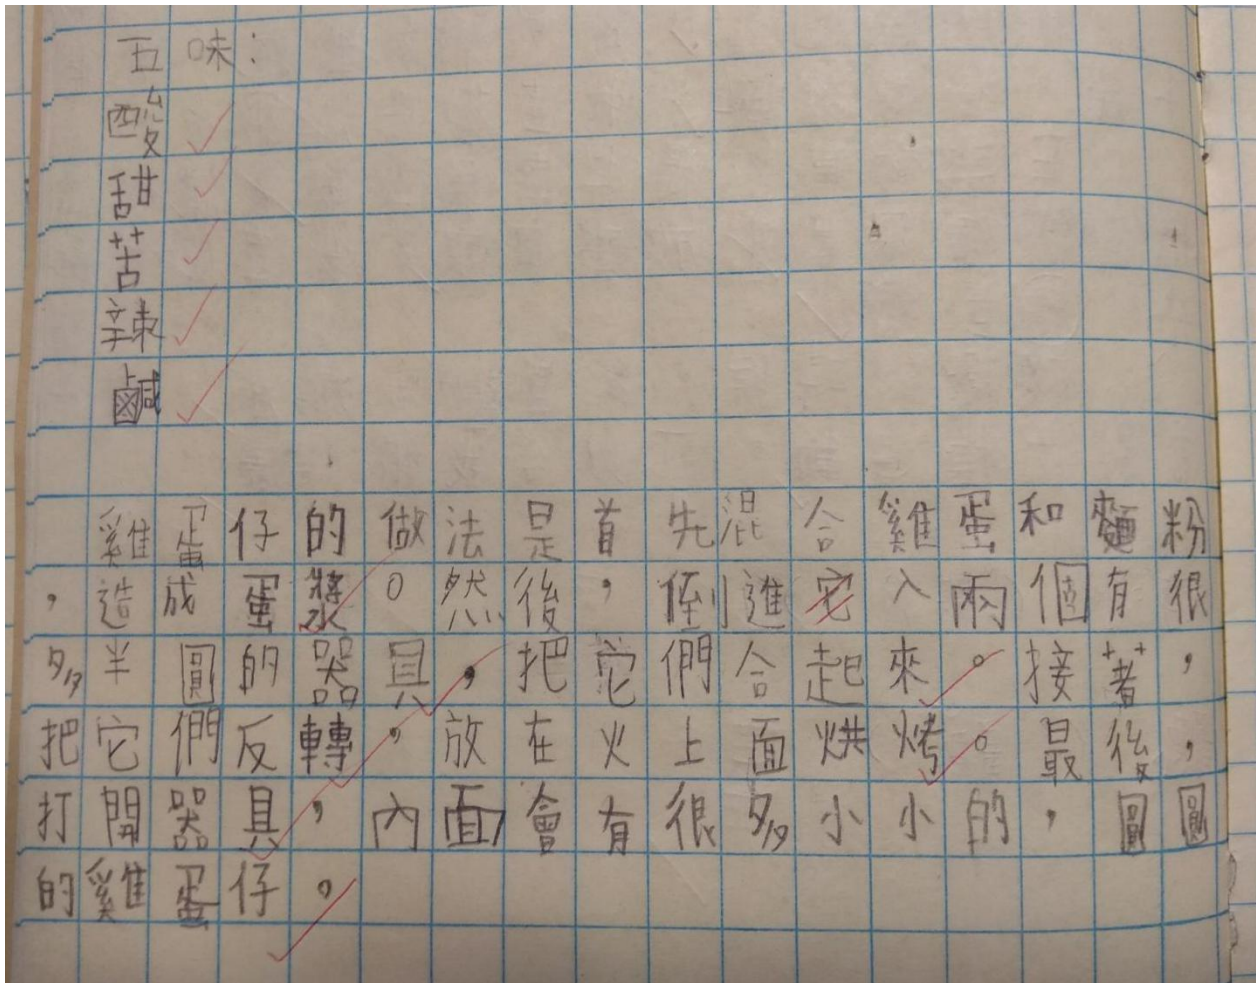 五味：
酸
甜
苦
辣
鹹
雞蛋仔的做法是首先混合雞蛋和麵粉
，造成蛋漿。然後，倒進入兩個有很
多半圓的器具，把它們合起來。接著，
把它們反轉，放在火上面烘烤。最後，
打開器具，內面會有很多小小的，圓圓
的雞蛋仔。